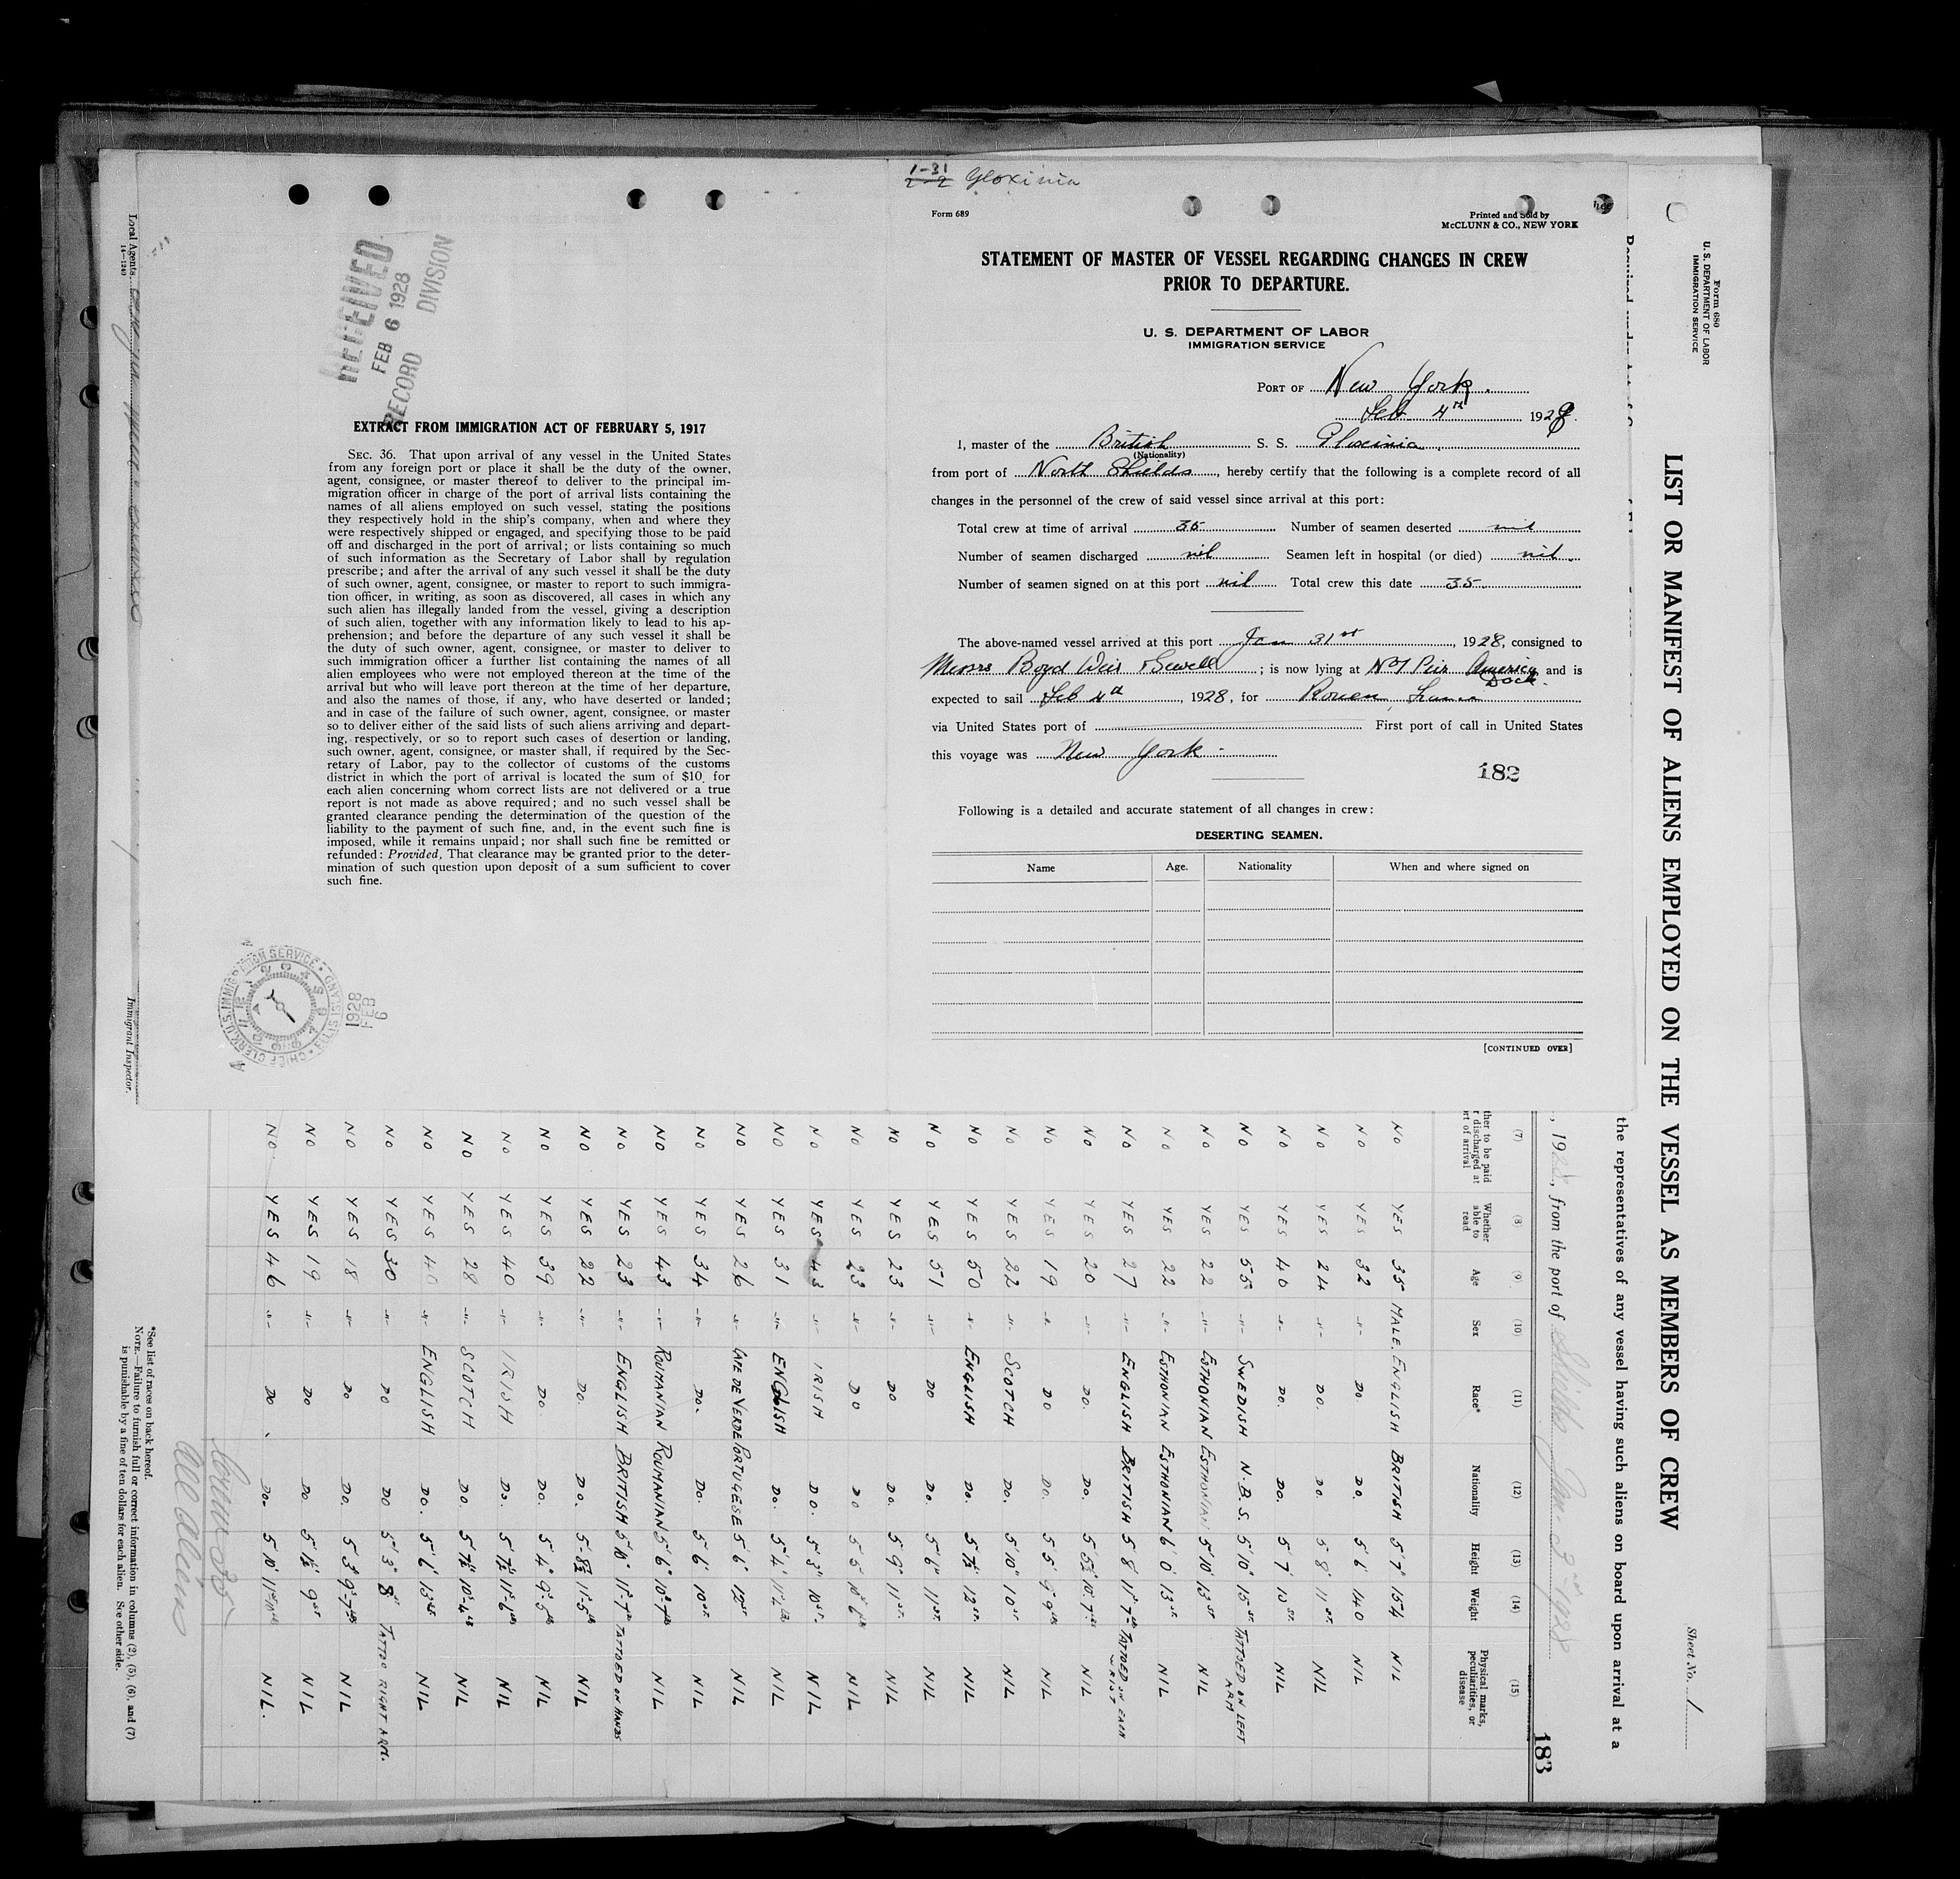 1-31
2-2 Gloxinia
Form 689
Printed and Sold by
McCLUNN & CO., NEW YORK
STATEMENT OF MASTER OF VESSEL REGARDING CHANGES IN CREW
PRIOR TO DEPARTURE.
U. S. DEPARTMENT OF LABOR
IMMIGRATION SERVICE
PORT OF New York.
Feb 4th 1928.
I, master of the British S. S. Gloxinia
(Nationality)
from port of North Shields, hereby certify that the following is a complete record of all
changes in the personnel of the crew of said vessel since arrival at this port:
Total crew at time of arrival 35 Number of seamen deserted nil
Number of seamen discharged nil Seamen left in hospital (or died) nil
Number of seamen signed on at this port nil Total crew this date 35
The above-named vessel arrived at this port Jan 31st, 1928, consigned to
Messrs Boyd Weir & Sewell; is now lying at No 1 Pier America Dock. and is
expected to sail Feb 4th, 1928, for Rouen, France
via United States port of First port of call in United States
this voyage was New York
182
Following is a detailed and accurate statement of all changes in crew:
DESERTING SEAMEN.
Name Age. Nationality When and where signed on
[CONTINUED OVER]
RECEIVED
FEB 6 1928
RECORD DIVISION
EXTRACT FROM IMMIGRATION ACT OF FEBRUARY 5, 1917
SEC. 36. That upon arrival of any vessel in the United States
from any foreign port or place it shall be the duty of the owner,
agent, consignee, or master thereof to deliver to the principal im-
migration officer in charge of the port of arrival lists containing the
names of all aliens employed on such vessel, stating the positions
they respectively hold in the ship's company, when and where they
were respectively shipped or engaged, and specifying those to be paid
off and discharged in the port of arrival; or lists containing so much
of such information as the Secretary of Labor shall by regulation
prescribe; and after the arrival of any such vessel it shall be the duty
of such owner, agent, consignee, or master to report to such immigra-
tion officer, in writing, as soon as discovered, all cases in which any
such alien has illegally landed from the vessel, giving a description
of such alien, together with any information likely to lead to his ap-
prehension; and before the departure of any such vessel it shall be
the duty of such owner, agent, consignee, or master to deliver to
such immigration officer a further list containing the names of all
alien employees who were not employed thereon at the time of the
arrival but who will leave port thereon at the time of her departure,
and also the names of those, if any, who have deserted or landed;
and in case of the failure of such owner, agent, consignee, or master
so to deliver either of the said lists of such aliens arriving and depart-
ing, respectively, or so to report such cases of desertion or landing,
such owner, agent, consignee, or master shall, if required by the Sec-
retary of Labor, pay to the collector of customs of the customs
district in which the port of arrival is located the sum of $10 for
each alien concerning whom correct lists are not delivered or a true
report is not made as above required; and no such vessel shall be
granted clearance pending the determination of the question of the
liability to the payment of such fine, and, in the event such fine is
imposed, while it remains unpaid; nor shall such fine be remitted or
refunded: Provided, That clearance may be granted prior to the deter-
mination of such question upon deposit of a sum sufficient to cover
such fine.
U.S. IMMIGRATION SERVICE
CHIEF CLERK
ELLIS ISLAND
1928
FEB
6
Form 680
U. S. DEPARTMENT OF LABOR
IMMIGRATION SERVICE
Sheet No. 1
LIST OR MANIFEST OF ALIENS EMPLOYED ON THE VESSEL AS MEMBERS OF CREW
the representatives of any vessel having such aliens on board upon arrival at a
, 1928, from the port of Shields Jan. 3rd 1928
183
(7) (8) (9) (10) (11) (12) (13) (14) (15)
Whether able to read Age Sex Race* Nationality Height Weight Physical marks, peculiarities, or disease
NO YES 35 MALE. ENGLISH BRITISH 5'7" 154 NIL
NO YES 32 -"- DO DO. 5'6" 140 NIL
NO YES 24 -"- DO. DO. 5 8" 11 ST. NIL
NO YES 40 -"- DO. DO. 5'7" 10 ST. NIL
NO YES 55 -"- SWEDISH N.B.S. 5'10" 15 ST. TATTOED ON LEFT ARM
NO YES 22 -"- ESTHONIAN ESTHONIAN 5'10" 13 ST NIL
NO YES 22 -"- ESTHONIAN ESTHONIAN 6'0" 13 ST NIL
NO YES 27 -"- ENGLISH BRITISH 5 8" 11 7 TATTOED ON EACH WRIST
NO YES 20 -"- DO. DO. 5 5½ 10 7 NIL
NO YES 19 -"- DO DO. 5 5" 9 9 NIL
NO YES 22 -"- SCOTCH DO. 5'10" 10 ST NIL
NO YES 50 -"- ENGLISH DO. 5 7½ 12 ST. NIL
NO YES 51 -"- DO DO. 5'6" 11 ST. NIL
NO YES 23 -"- DO DO. 5 9" 11 ST. NIL
NO YES 23 -"- DO DO 5 5" 10 6 NIL
NO YES 43 -"- IRISH DO. 5'3" 10 ST. NIL
NO YES 31 -"- ENGLISH DO. 5'4" NIL
NO YES 26 -"- CAPE DE VERDE PORTUGESE 5'6" 12 ST NIL
NO YES 34 -"- DO. DO. 5 6" 10 ST. NIL
NO YES 43 -"- ROUMANIAN ROUMANIAN 5'6" 10-7 NIL
NO YES 23 -"- ENGLISH BRITISH 5'10" 11-7 TATTOED ON HANDS
NO YES 22 -"- DO. DO. 5-8½ 11-5 NIL
NO YES 39 -"- DO. DO. 5'4" 9-5 NIL
NO YES 40 -"- IRISH DO. 5 7½ 11-6 NIL
NO YES 28 -"- SCOTCH DO. 5 7½ 10-4 NIL
NO YES 40 -"- ENGLISH DO. 5'6" 13 ST NIL
NO YES 30 -"- DO DO 5'3" 8 TATTOO RIGHT ARM.
NO YES 18 -"- DO DO. 5 3" 9-7 NIL
NO YES 19 -"- DO DO. 9 ST NIL
NO. YES 46 -"- DO. DO. 5 10" NIL.
Crew 35
All Aliens
*See list of races on back hereof.
NOTE.—Failure to furnish full or correct information in columns (2), (5), (6), and (7)
is punishable by a fine of ten dollars for each alien. See other side.
Local Agents
14—1240
Immigrant Inspector.